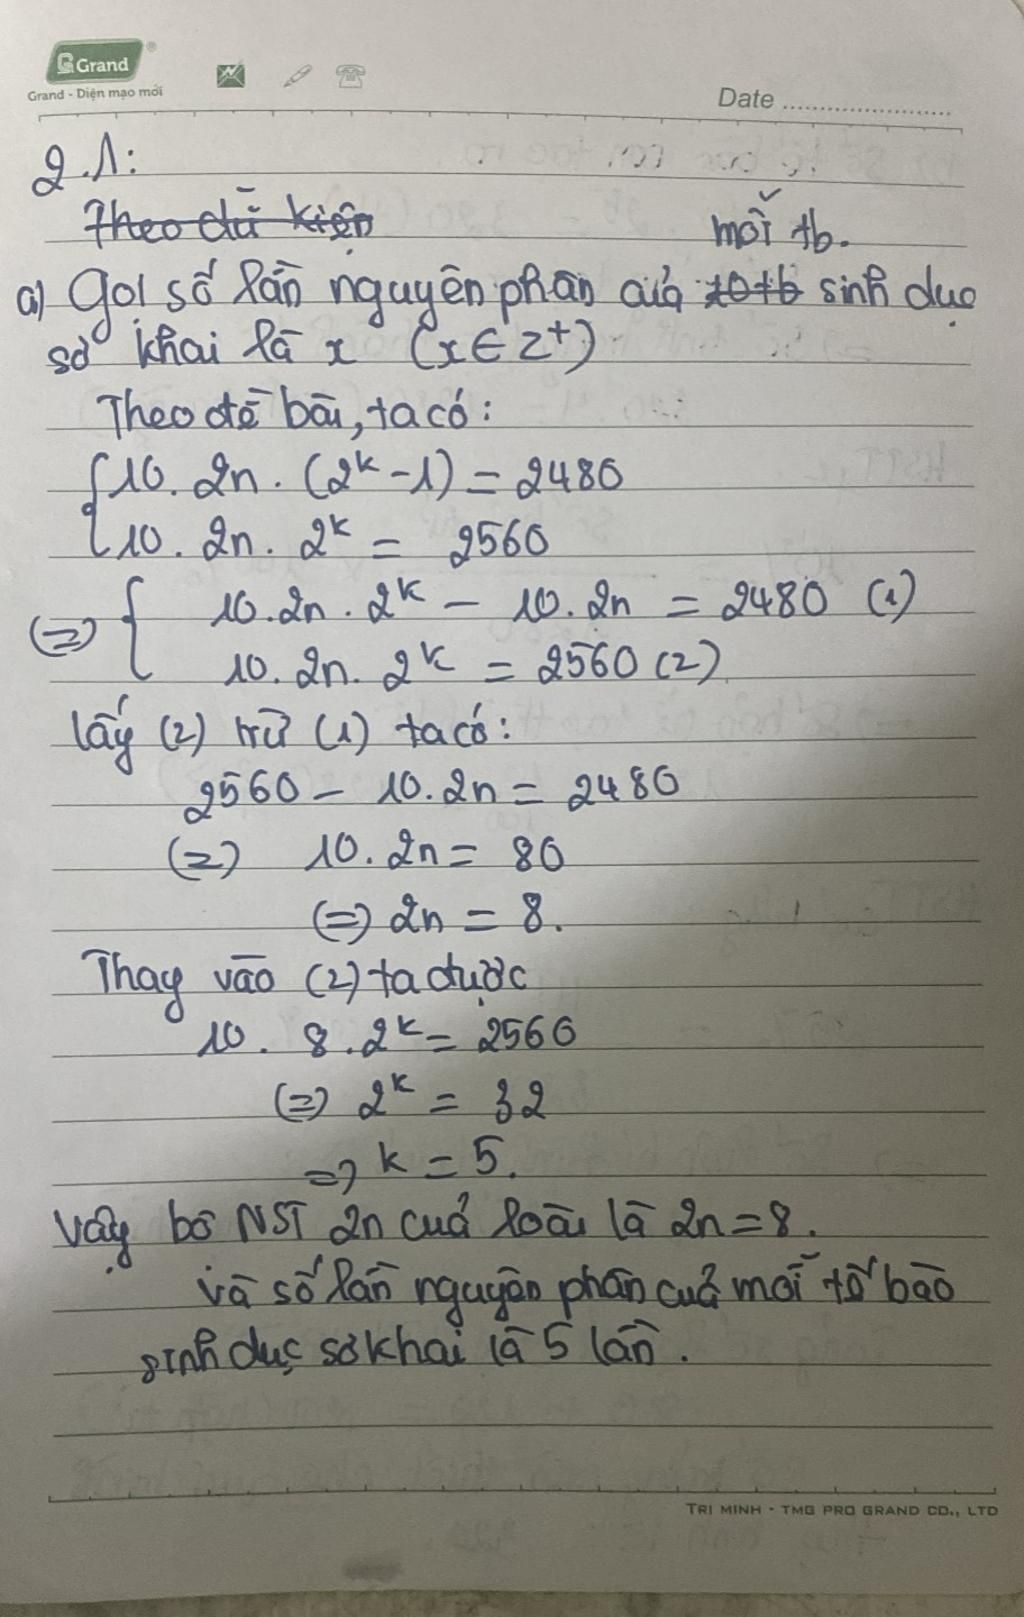 Grand
Grand - Diện mạo mới
Date
2.1:
Theo dữ kiện
mỗi tb.
a) Gọi số lần nguyên phân của 10 tb sinh dục
sơ khai là x (x ∈ Z⁺)
Theo đề bài, ta có:
{ 10. 2n. (2ᵏ - 1) = 2480
10. 2n. 2ᵏ = 2560
(=) { 10. 2n. 2ᵏ - 10. 2n = 2480 (1)
10. 2n. 2ᵏ = 2560 (2)
lấy (2) trừ (1) ta có:
2560 - 10. 2n = 2480
(=) 10. 2n = 80
(=) 2n = 8.
Thay vào (2) ta được
10. 8. 2ᵏ = 2560
(=) 2ᵏ = 32
=> k = 5.
Vậy bộ NST 2n của loài là 2n = 8.
và số lần nguyên phân của mỗi tế bào
sinh dục sơ khai là 5 lần.
TRI MINH - TMG PRO GRAND CO., LTD